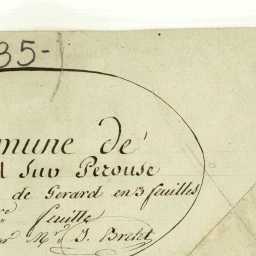 35-
mune de
l sur Perouse
de Gerard en 3 feuilles
re feuille
ar Mr. J. Bretet